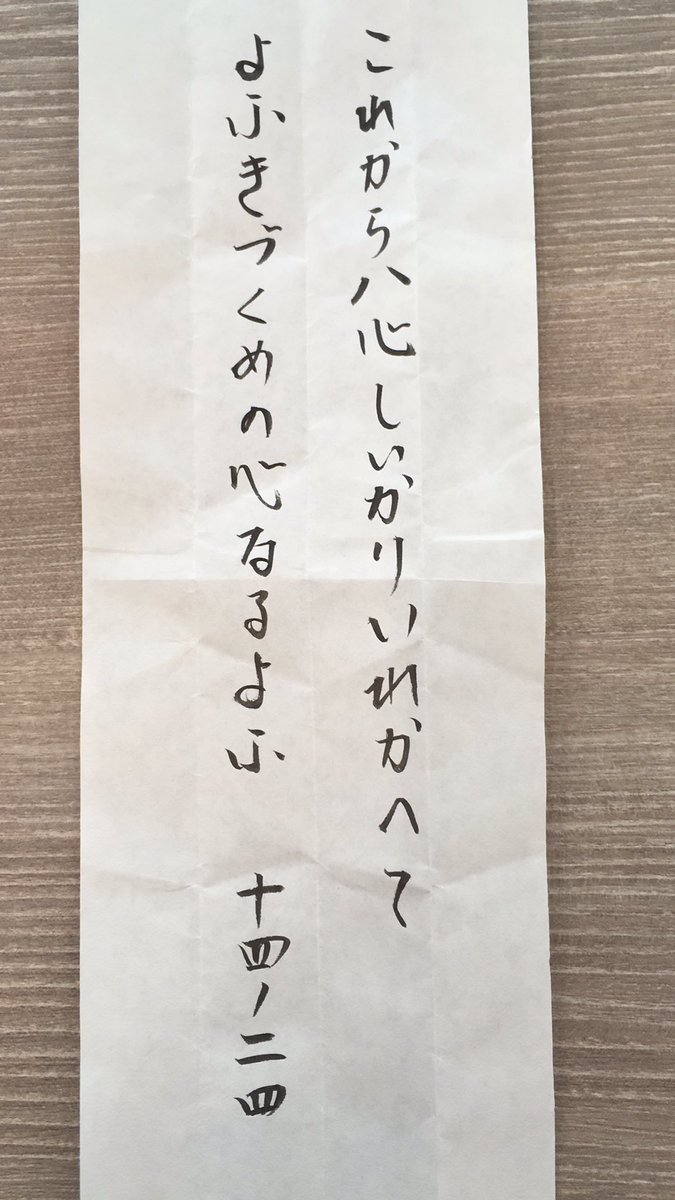 これからハ心しいかりいれかへて
よふきづくめの心なるよふ 十四ノ二四